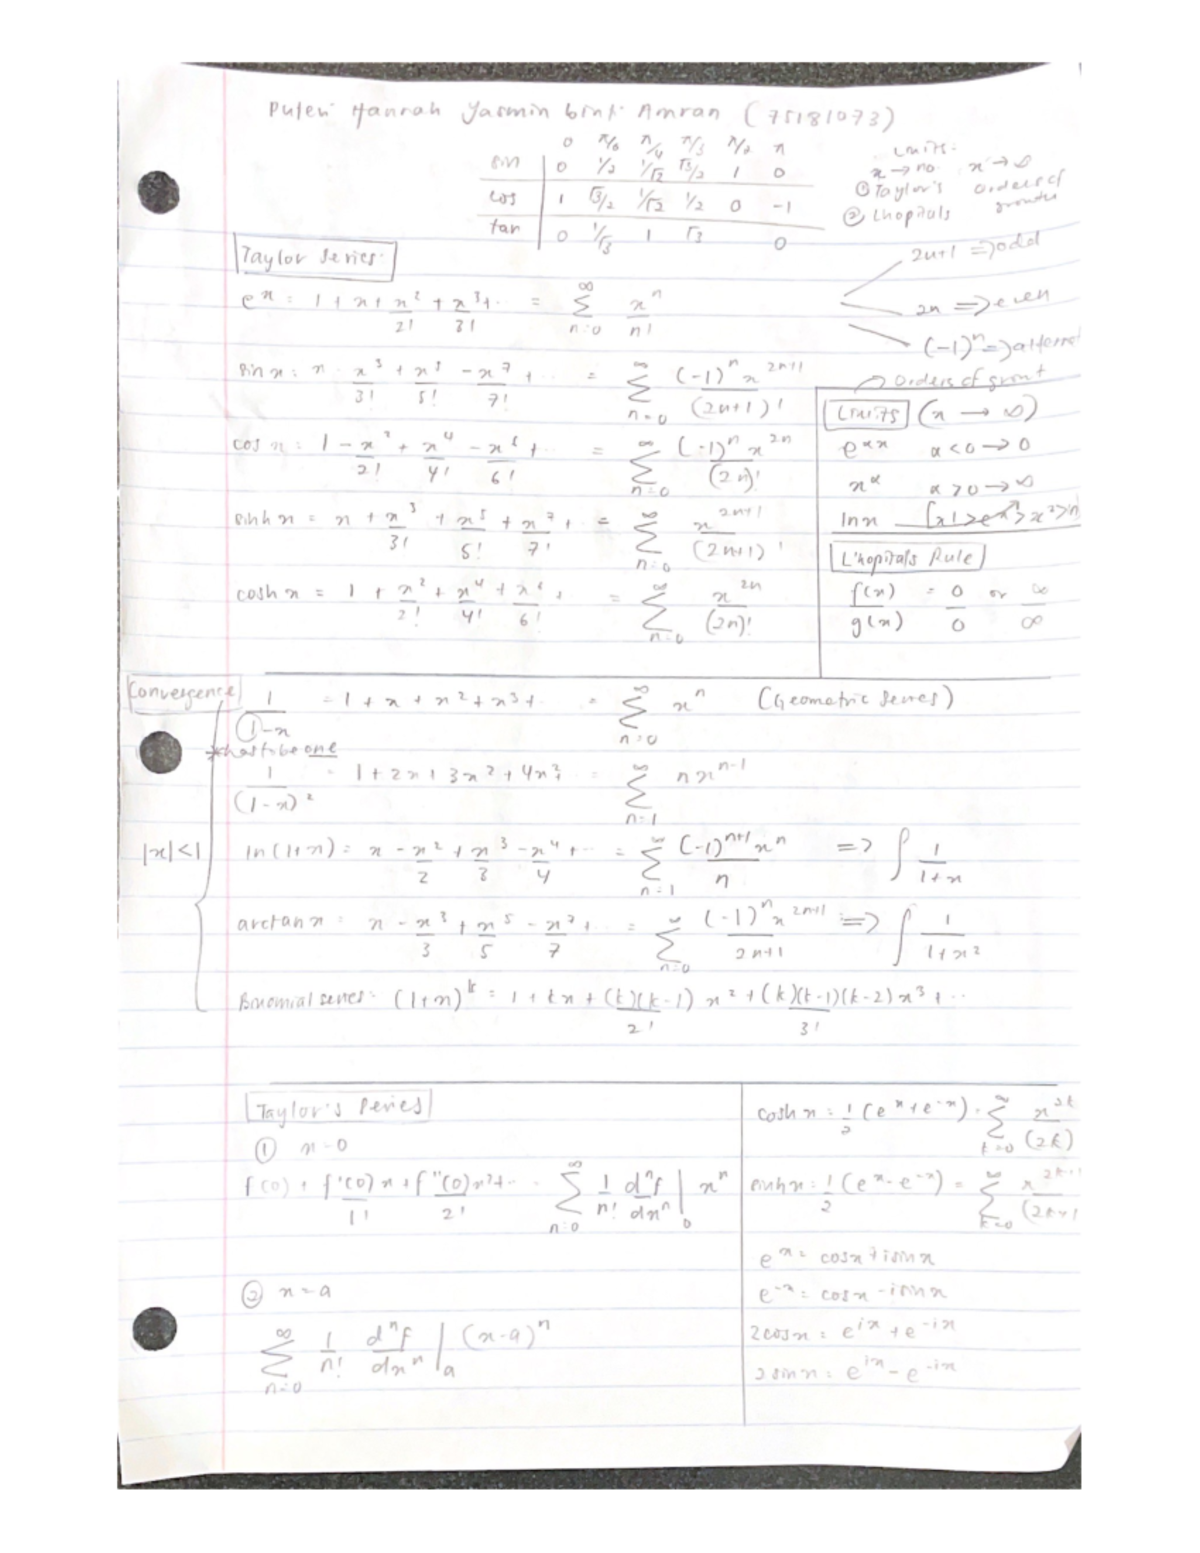 Puteri Hannah Yasmin bint Amran (75181073)
0 π/6 π/4 π/3 π/2 π
sin 0 1/2 1/√2 √3/2 1 0
cos 1 √3/2 1/√2 1/2 0 -1
tan 0 1/√3 1 √3 0
Limits:
x → no x → ∞
① Taylor's orders of
② Lhopitals growth
Taylor Series:
2n+1 => odd
2n => even
(-1)^n =>
e^x = 1 + x + x^2/2! + x^3/3! + .. = Σ_{n=0}^∞ x^n/n!
sin x = x - x^3/3! + x^5/5! - x^7/7! + .. = Σ_{n=0}^∞ (-1)^n x^{2n+1}/(2n+1)!
cos x = 1 - x^2/2! + x^4/4! - x^6/6! + .. = Σ_{n=0}^∞ (-1)^n x^{2n}/(2n)!
sinh x = x + x^3/3! + x^5/5! + x^7/7! + .. = Σ_{n=0}^∞ x^{2n+1}/(2n+1)!
cosh x = 1 + x^2/2! + x^4/4! + x^6/6! + .. = Σ_{n=0}^∞ x^{2n}/(2n)!
Orders of
Limits (x → ∞)
e^{αx} α<0 → 0
x^α α>0 → ∞
ln x
L'hopitals Rule
f(x)/g(x) = 0/0 or ∞/∞
Convergence
1/(1-x) = 1 + x + x^2 + x^3 + .. = Σ_{n=0}^∞ x^n (Geometric Series)
*has to be one
1/(1-x)^2 = 1 + 2x + 3x^2 + 4x^3 .. = Σ_{n=1}^∞ nx^{n-1}
|x|<1
ln(1+x) = x - x^2/2 + x^3/3 - x^4/4 + .. = Σ_{n=1}^∞ (-1)^{n+1} x^n/n => ∫ 1/(1+x)
arctan x = x - x^3/3 + x^5/5 - x^7/7 + .. = Σ_{n=0}^∞ (-1)^n x^{2n+1}/(2n+1) => ∫ 1/(1+x^2)
Binomial series: (1+x)^k = 1 + kx + (k)(k-1)/2! x^2 + (k)(k-1)(k-2)/3! x^3 + ..
Taylor's Series
① x=0
f(0) + f'(0)x/1! + f''(0)x^2/2! + .. Σ_{n=0}^∞ 1/n! d^n f/dx^n |_0 x^n
② x=a
Σ_{n=0}^∞ 1/n! d^n f/dx^n |_a (x-a)^n
cosh x = 1/2 (e^x + e^{-x}) = Σ_{k=0}^∞ x^{2k}/(2k)
sinh x = 1/2 (e^x - e^{-x}) = Σ_{k=0}^∞ x^{2k+1}/(2k+1
e^x = cosx + isinx
e^{-x} = cosx - isinx
2cosx = e^{ix} + e^{-ix}
2sinx = e^{ix} - e^{-ix}